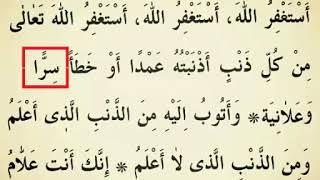 أَسْتَغْفِرُ اللهَ، أَسْتَغْفِرُ اللهَ، أَسْتَغْفِرُ اللهَ تَعَالٰى
مِنْ كُلِّ ذَنْبٍ أَذْنَبْتُهُ عَمْدًا أَوْ خَطَأً سِرًّا
وَعَلَانِيَةً * وَأَتُوبُ إِلَيْهِ مِنَ الذَّنْبِ الَّذِى أَعْلَمُ
وَمِنَ الذَّنْبِ الَّذِى لَا أَعْلَمُ * إِنَّكَ أَنْتَ عَلَّامُ